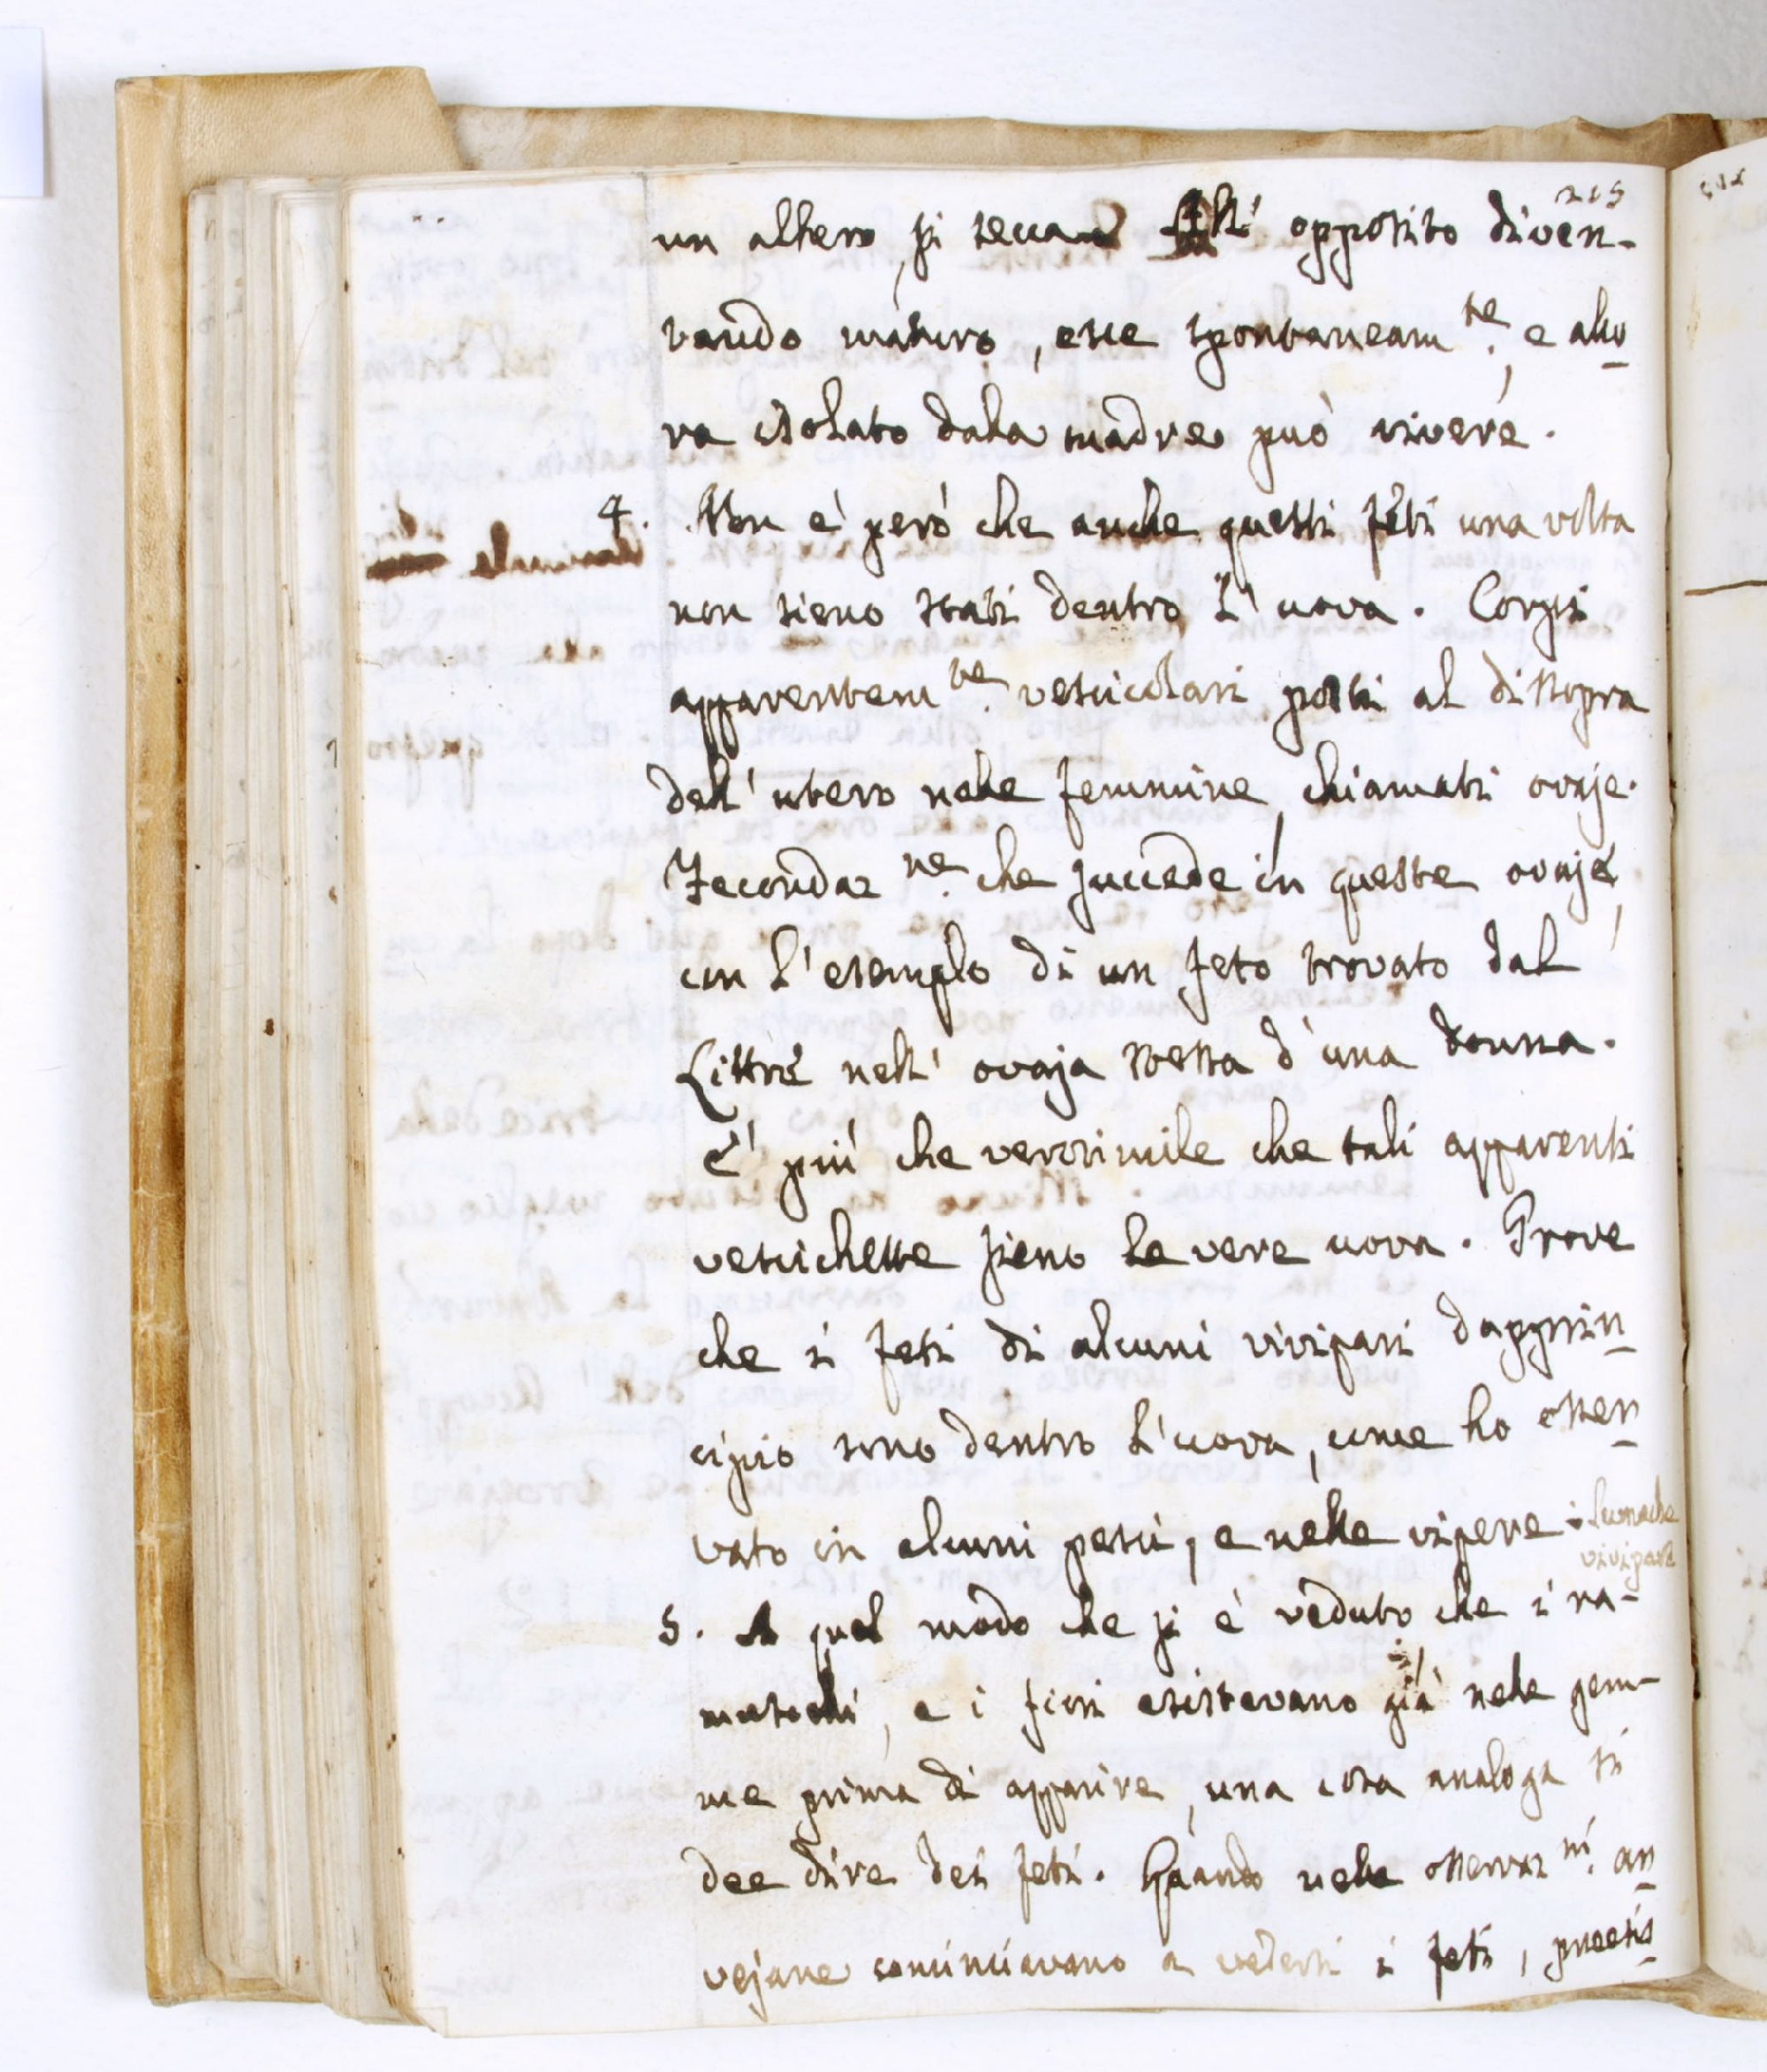 215
un albero, si secca. All' opposito diven-
tando maturo, esce spontaneam.te, e allo
ra isolato dalla madre può vivere.
4. Non è però che anche questi feti una volta
non sieno stati dentro l'uova. Corpi
apparentem.te vescicolari posti al dissopra
dell'utero nelle femmine, chiamati ovaje.
Fecondaz.ne che succede in queste ovaje,
con l'esempio di un feto trovato dal
Littré nell'ovaja stessa d'una donna.
È più che verosimile che tali apparenti
vescichette sieno le vere uova. Prove
che i feti di alcuni vivipari dapprin
cipio sono dentro l'uova, come ho osser
vato in alcuni pesci, e nelle vipere. lumache
vivipare
5. A quel modo che si è veduto che i ra-
muscelli, e i fiori esistevano già nelle gem-
me prima di apparire, una cosa analoga si
dee dire dei feti. Quando nelle osservaz.ni ar
vejane cominciavano a vedersi i feti, preesis